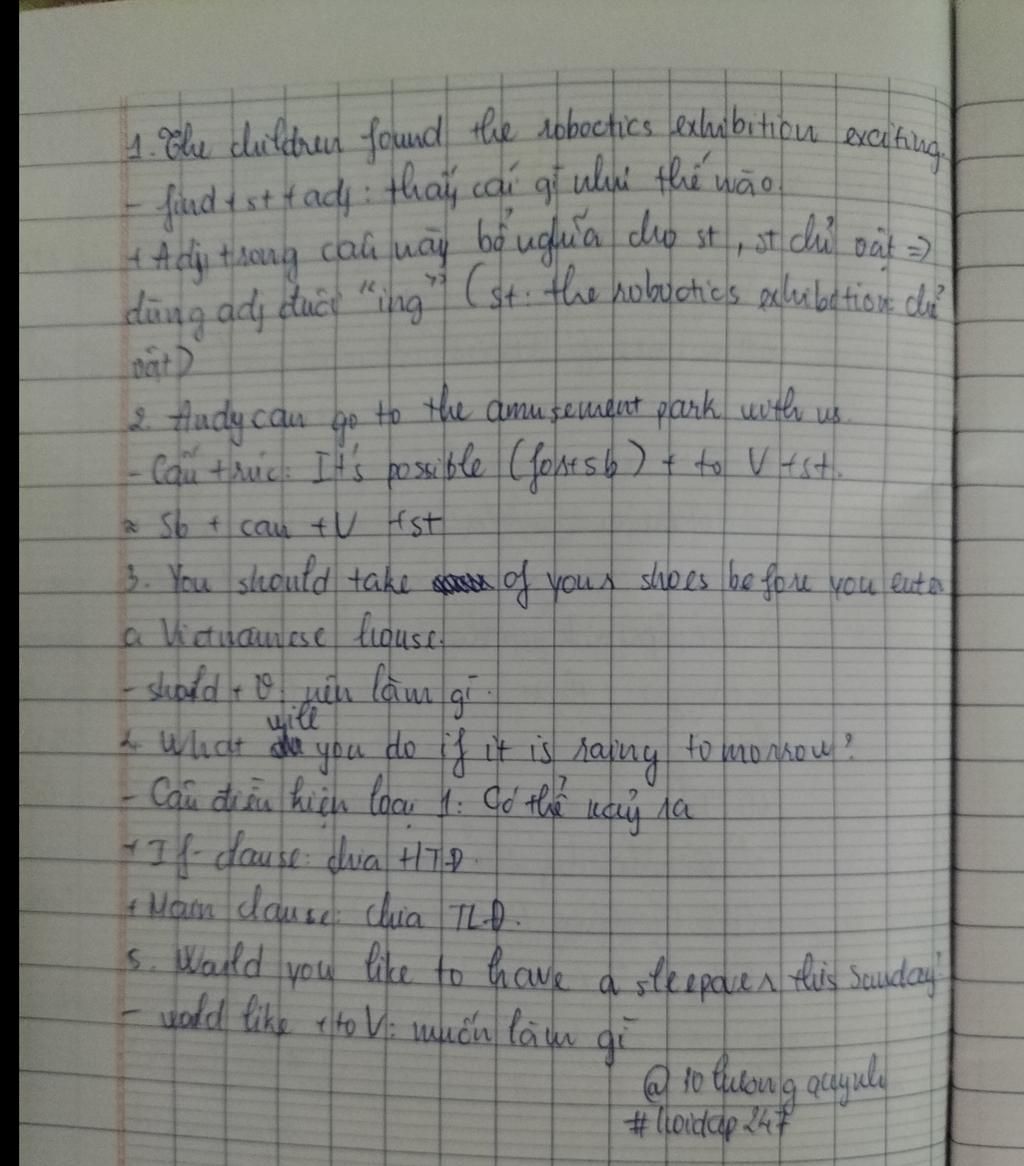 1. The children found the roboctics exhibition exciting.
- find + st + adj : thấy cái gì như thế nào
+ Adj trong câu này bổ nghĩa cho st, st chỉ vật =>
dùng adj đuôi "ing" (st: the roboctics exhibition chỉ
vật)
2. Andy can go to the amusement park with us.
- Cấu trúc: It's possible (for + sb) + to V + st.
≈ Sb + can + V + st
3. You should take of your shoes before you enter
a Vietnamese house.
- should + V: nên làm gì.
4. What will you do if it is rainy tomorrow?
- Câu điều kiện loại 1: Có thể xảy ra
+ If-clause: chia HTĐ.
+ Main clause: chia TLĐ.
5. Would you like to have a sleepover this Sunday?
- would like + to V: muốn làm gì
@ 10 luong quynh
# hoidap 247